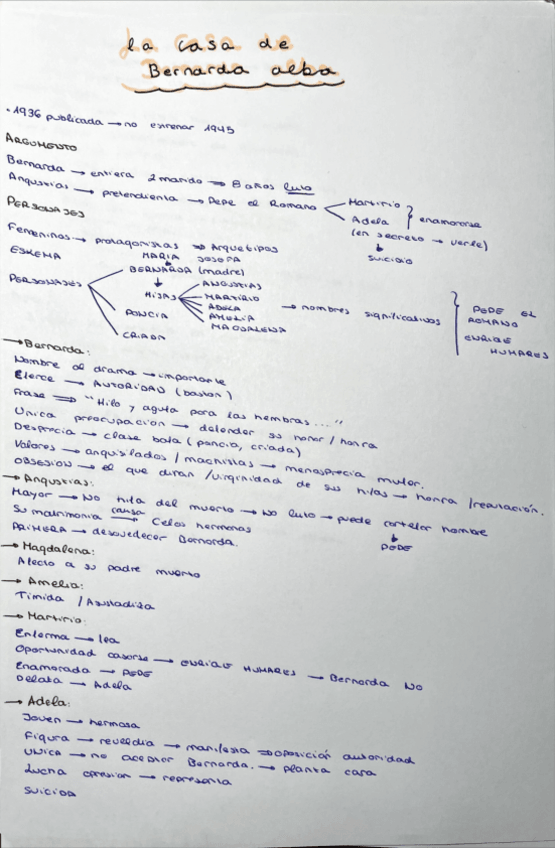 la casa de
Bernarda alba
· 1936 publicada → no estrenar 1945
ARGUMENTO
Bernarda → entierra 2 marido → 8 años luto
Angustias → pretendiente → Pepe el Romano
Martirio
Adela
enamorarse
(en secreto → verle)
suicidio
PERSONAJES
Femeninos → protagonistas ⇒ Arquetipos
ESKEMA
MARIA JOSEFA
PERSONAJES
BERNARDA (madre)
HIJAS
ANGUSTIAS
MARTIRIO
ADELA
AMELIA
MAGDALENA
PONCIA
CRIADA
→ nombres significativos
PEPE EL ROMANO
ENRIQUE HUMARES
→ Bernarda:
Nombre al drama → importante
Ejerce → AUTORIDAD (baston)
Frase ⇒ "Hilo y aguja para las hembras ..."
Unica preocupación → defender su honor / honra
Desprecia → clase baja (poncia, criada)
Valores → anquilados / machistas → menosprecia mujer.
OBSESION → el que diran / virginidad de sus hijas → honra / reputación.
→ Angustias:
Mayor → NO hija del muerto → NO luto → puede cortejar hombre
PEPE
Su matrimonio causa → Celos hermanas
PRIMERA → desobedecer Bernarda.
→ Magdalena:
Afecto a su padre muerto
→ Amelia:
Timida / Asustadiza
→ Martirio:
Enferma → fea
Oportunidad casarse → ENRIQUE HUMARES → Bernarda NO
Enamorada → PEPE
Delata → Adela
→ Adela:
Joven → hermosa
Figura → rebeldia → manifiesta ⇒ oposición autoridad
UNICA → no aceptar Bernarda. → planta cara
Lucha opresion → representa
SUICIDA